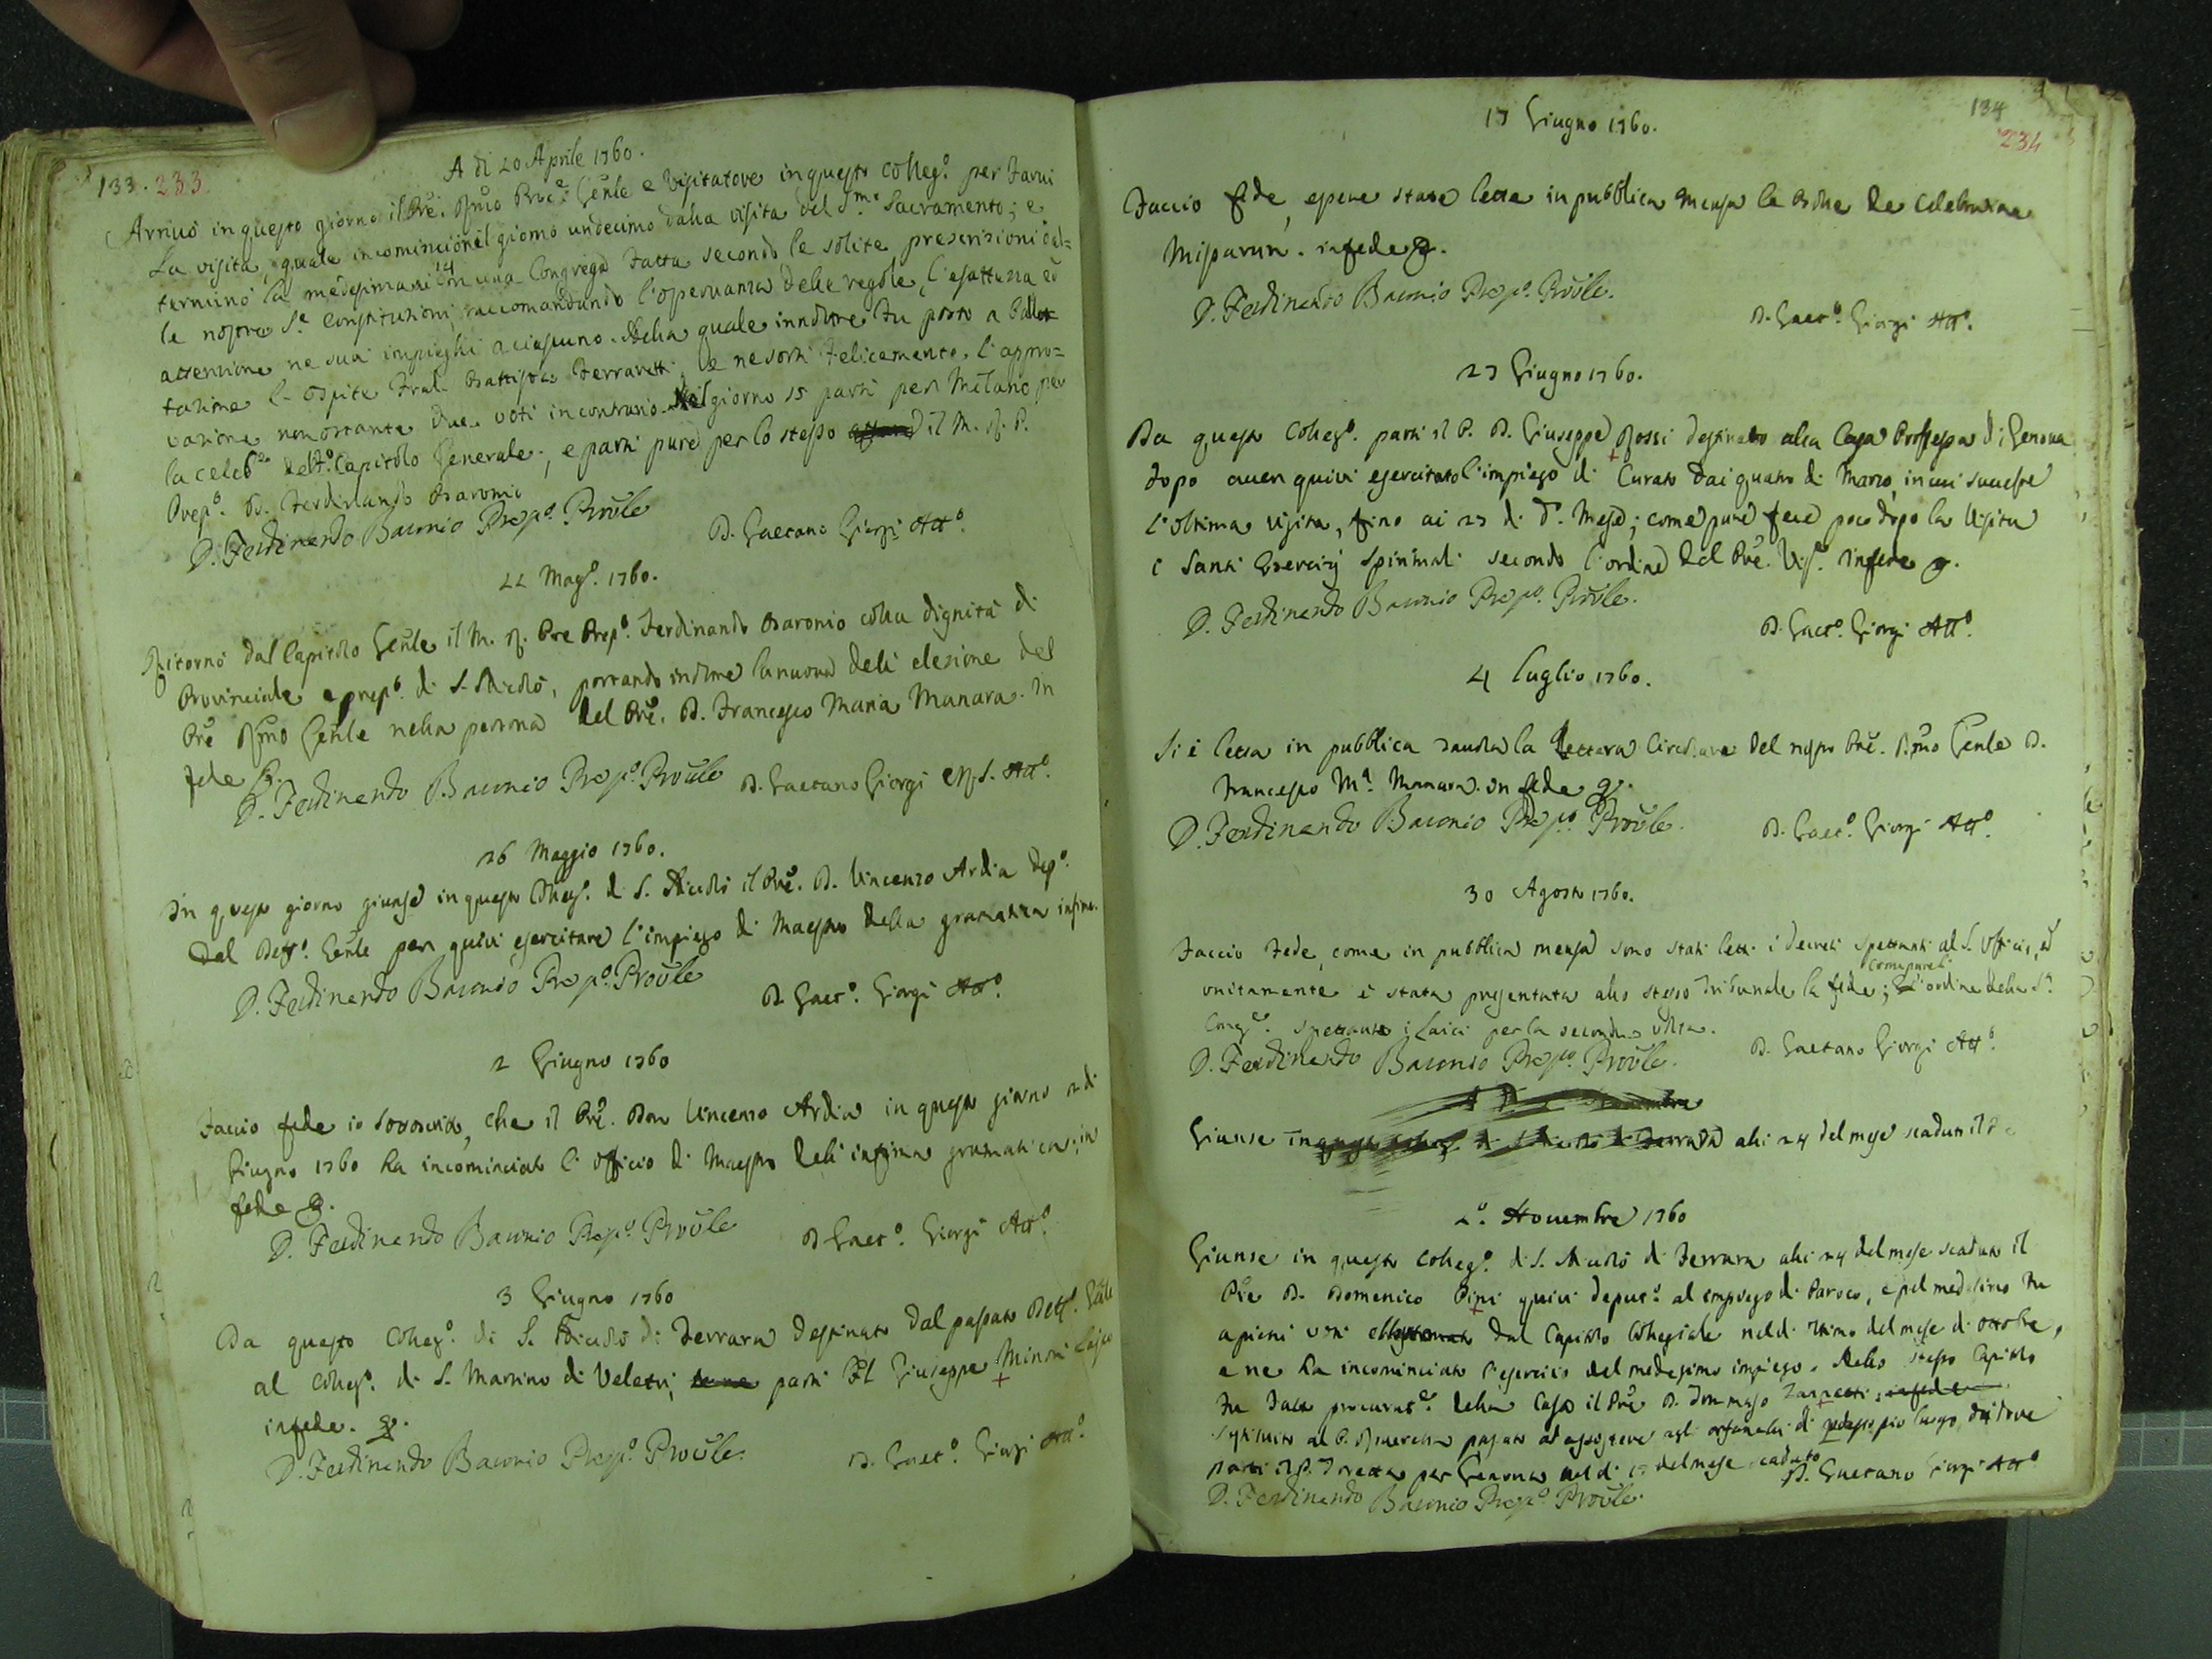 133. 233.
A di 20 Aprile 1760.
Arrivò in questo giorno il Pre. Rmo Proc.e Genle e Visitatore in questo Colleg.o per farvi
La visita, quale incominciò nel giorno undecimo dalla visita del S.mo Sacramento; e
terminò la medesima ai 14 con una Congrega fatta secondo le solite prescrizioni dal=
le nostre S.e Constituzioni, raccomandando l'osservanza delle regole, l'esattezza ed
attenzione ne suoi impieghi a ciascuno. Nella quale innoltre fu posto a ballot
tazione l'Ospite Frat. Battista Ferraretti, e ne sortì felicemente l'appro=
vazione nonostante due voti in contrario. Nel giorno 15 partì per Milano per
la celeb.e del Capitolo Generale, e partì pure per lo stesso il M. R. P.
Prep.o D. Ferdinando Baronio
D. Ferdinando Baronio Prep.o Prõule
D. Gaetano Giorgi Att.o
22 Mag.o 1760.
Ritornò dal Capitolo Genle il M. R. Pre Prep.o Ferdinando Baronio colla dignità di
Provinciale e prep.o di S. Nicolò, portando indme la nuova dell'elezione del
Prẽ Rmo Genle nella persona del Prẽ. D. Francesco Maria Manara. In
fede &.
D. Ferdinando Baronio Prep.o Prõule D. Gaetano Giorgi C.R.S. Att.o
26 Maggio 1760.
In questo giorno giunse in questo Colleg.o di S. Nicolò il Prẽ. D. Vincenzo Ardia dep.o
dal Deff.o Genle per quivi esercitare l'impiego di Maestro della gramatica infima.
D. Ferdinando Baronio Prep.o Prõule
D. Gaet.o Giorgi Att.o
2 Giugno 1760
Faccio fede io sottoscritto, che il Prẽ. Don Vincenzo Ardia in questo giorno 2 di
Giugno 1760 ha incominciato l'officio di Maestro dell'infima gramatica; in
fede &.
D. Ferdinando Baronio Prep.o Prõule
D. Gaet.o Giorgi Att.o
3 Giugno 1760
Da questo Colleg.o di S. Nicolò di Ferrara destinato dal passato Deff.o Gẽnle
al Colleg.o di S. Martino di Veletri, partì Giuseppe Minoni
in fede. &.
D. Ferdinando Baronio Prep.o Prõule.
D. Gaet.o Giorgi Att.o
134
234
17 Giugno 1760.
Faccio fede, essere state lette in pubblica mensa le Bolle de Celebratne
Missarum. in fede &.
D. Ferdinando Baronio Prep.o Prõule.
D. Gaet.o Giorgi Att.o
23 Giugno 1760.
Da questo Colleg.o partì il P. D. Giuseppe Rossi destinato alla Casa Professa di Genova
dopo aver quivi esercitato l'impiego di Curato dai quatro di Marzo, in cui successe
l'ultima visita, fino ai 23 di d.o Mese; come pure fece poco dopo la Visita
i Santi Esercizj Spirituali secondo l'ordine del Prẽ. Vis.e In fede &.
D. Ferdinando Baronio Prep.o Prõule.
D. Gaet.o Giorgi Att.o
4 Luglio 1760.
Si è letta in pubblica tavola la Lettera Circolare del nostro Prẽ. Rmo Genle D.
Francesco M.a Manara. In fede &.
D. Ferdinando Baronio Prep.o Prõule.
D. Gaet.o Giorgi Att.o
30 Agosto 1760.
Faccio fede, come in pubblica mensa sono stati letti i decreti spettanti al S. Officio, ed
unitamente è stata presentata allo stesso Tribunale la fede; come pure l'ordine della S.a
Cong.e spettante i Laici per la seconda volta.
D. Ferdinando Baronio Prep.o Prõule.
D. Gaetano Giorgi Att.o
Giunse alli 24 del mese scaduto il
2.o Novembre 1760
Giunse in questo Colleg.o di S. Nicolò di Ferrara alli 24 del mese scaduto il
Pre D. Domenico Pini quivi deput.o al impiego di Paroco, e pel medesimo fu
a pieni voti dal Capitolo Collegiale nel dì ultimo del mese di Ottobre,
e ne ha incominciato l'esercizio del medesimo impiego. Nello stesso Capitolo
fu fatto procurat.e della Casa il Prẽ D. Tommaso Zanetti; in fede
sostituito al P. passato ad assistere agli orfanelli di pio luogo, di dove
partì il P. per Genova nel dì 13 del mese scaduto
D. Gaetano Giorgi Att.o
D. Ferdinando Baronio Prep.o Prõule.